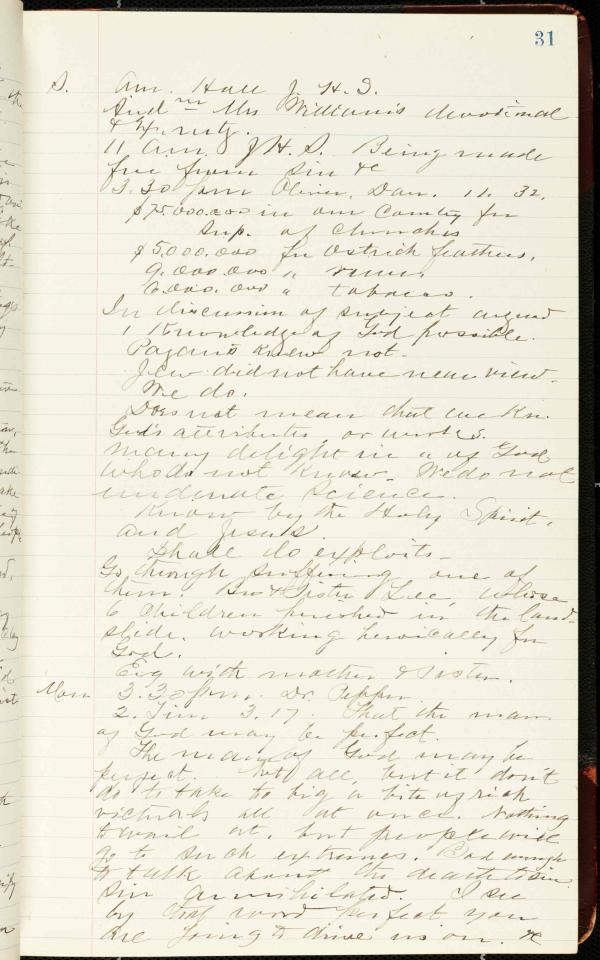 31
S. Am. Hall J. H. S.
And Mr Mrs Williams devotional
& H. mtg.
11 a.m. J. H. S. Being made
free from sin &c
3.30 pm Oliver. Dan. 11. 32.
$75.000.000 in our Country for
Sup. of Churches
$5.000.000 for Ostrich feathers.
9.000.000 "
6.000.000 " tobacco.
In discussion of subject argued
1 Knowledge of God possible.
Pagans knew not.
Jew did not have near view.
We do.
Does not mean that we Kn.
God's attributes, or works.
Many delight in " of God
who do not know. We do not
underate science.
Know by the Holy Spirit,
and Jesus.
Shall do exploits -
Go through suffering one of
them. Bro & Sister Lee, whose
6 Children perished in the land-
slide, working heroically for
God.
Evg with mother & Sister.
Mon 3.30 pm. Dr. Pepper
2. Tim 3.17. That the man
of God may be perfect.
The man of God may be
perfect. Not all, but it don't
do to take to big a bite of rich
victuals all at once. Nothing
to wait at, but people will
go to such extremes. Bad enough
to talk about the death to sin
sin annihilated. I see
by that word perfect you
are going to drive us on. &c